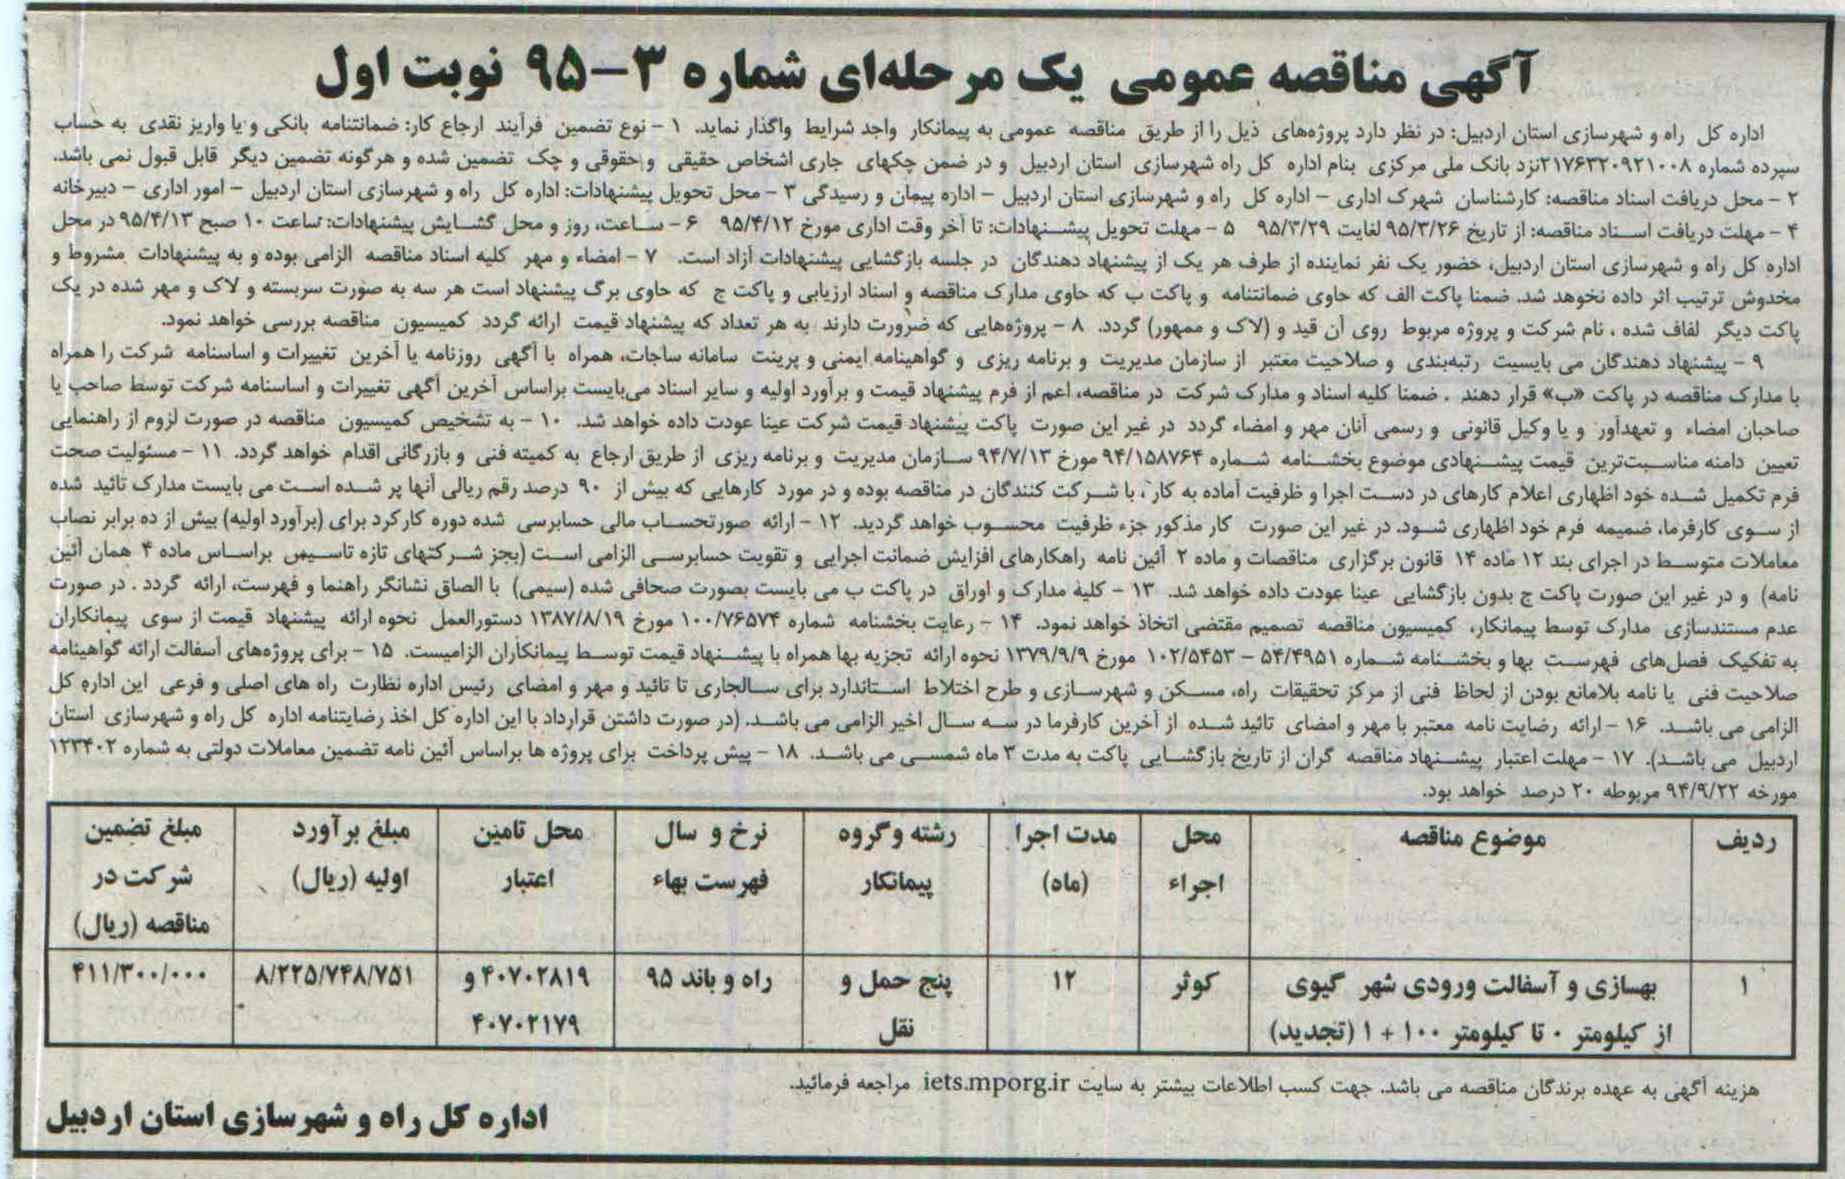 آگهی مناقصه عمومی یک مرحله‌ای شماره ۳-۹۵ نوبت اول
اداره کل راه و شهرسازی استان اردبیل: در نظر دارد پروژه‌های ذیل را از طریق مناقصه عمومی به پیمانکار واجد شرایط واگذار نماید. ۱- نوع تضمین فرآیند ارجاع کار: ضمانتنامه بانکی و یا واریز نقدی به حساب
سپرده شماره ۲۱۷۶۳۲۰۹۲۱۰۰۸نزد بانک ملی مرکزی بنام اداره کل راه شهرسازی استان اردبیل و در ضمن چکهای جاری اشخاص حقیقی و حقوقی و چک تضمین شده و هرگونه تضمین دیگر قابل قبول نمی باشد.
۲- محل دریافت اسناد مناقصه: کارشناسان شهرک اداری - اداره کل راه و شهرسازی استان اردبیل - اداره پیمان و رسیدگی ۳- محل تحویل پیشنهادات: اداره کل راه و شهرسازی استان اردبیل - امور اداری - دبیرخانه
۴- مهلت دریافت اسناد مناقصه: از تاریخ ۹۵/۳/۲۶ لغایت ۹۵/۳/۲۹ ۵- مهلت تحویل پیشنهادات: تا آخر وقت اداری مورخ ۹۵/۴/۱۲ ۶- ساعت، روز و محل گشایش پیشنهادات: ساعت ۱۰ صبح ۹۵/۴/۱۳ در محل
اداره کل راه و شهرسازی استان اردبیل، حضور یک نفر نماینده از طرف هر یک از پیشنهاد دهندگان در جلسه بازگشایی پیشنهادات آزاد است. ۷- امضاء و مهر کلیه اسناد مناقصه الزامی بوده و به پیشنهادات مشروط و
مخدوش ترتیب اثر داده نخوهد شد. ضمنا پاکت الف که حاوی ضمانتنامه و پاکت ب که حاوی مدارک مناقصه و اسناد ارزیابی و پاکت ج که حاوی برگ پیشنهاد است هر سه به صورت سربسته و لاک و مهر شده در یک
پاکت دیگر لفاف شده ، نام شرکت و پروژه مربوط روی آن قید و (لاک و ممهور) گردد. ۸- پروژه‌هایی که ضرورت دارند به هر تعداد که پیشنهاد قیمت ارائه گردد کمیسیون مناقصه بررسی خواهد نمود.
۹- پیشنهاد دهندگان می بایسیت رتبه‌بندی و صلاحیت معتبر از سازمان مدیریت و برنامه ریزی و گواهینامه ایمنی و پرینت سامانه ساجات، همراه با آگهی روزنامه یا آخرین تغییرات و اساسنامه شرکت را همراه
با مدارک مناقصه در پاکت «ب» قرار دهند . ضمنا کلیه اسناد و مدارک شرکت در مناقصه، اعم از فرم پیشنهاد قیمت و برآورد اولیه و سایر اسناد می‌بایست براساس آخرین آگهی تغییرات و اساسنامه شرکت توسط صاحب یا
صاحبان امضاء و تعهدآور و یا وکیل قانونی و رسمی آنان مهر و امضاء گردد در غیر این صورت پاکت پیشنهاد قیمت شرکت عینا عودت داده خواهد شد. ۱۰- به تشخیص کمیسیون مناقصه در صورت لزوم از راهنمایی
تعیین دامنه مناسبت‌ترین قیمت پیشنهادی موضوع بخشنامه شماره ۹۴/۱۵۸۷۶۴ مورخ ۹۴/۷/۱۳ سازمان مدیریت و برنامه ریزی از طریق ارجاع به کمیته فنی و بازرگانی اقدام خواهد گردد. ۱۱- مسئولیت صحت
فرم تکمیل شده خود اظهاری اعلام کارهای در دست اجرا و ظرفیت آماده به کار، با شرکت کنندگان در مناقصه بوده و در مورد کارهایی که بیش از ۹۰ درصد رقم ریالی آنها پر شده است می بایست مدارک تائید شده
از سوی کارفرما، ضمیمه فرم خود اظهاری شود. در غیر این صورت کار مذکور جزء ظرفیت محسوب خواهد گردید. ۱۲- ارائه صورتحساب مالی حسابرسی شده دوره کارکرد برای (برآورد اولیه) بیش از ده برابر نصاب
معاملات متوسط در اجرای بند ۱۲ ماده ۱۴ قانون برگزاری مناقصات و ماده ۲ آئین نامه راهکارهای افزایش ضمانت اجرایی و تقویت حسابرسی الزامی است (بجز شرکتهای تازه تاسیس براساس ماده ۴ همان آئین
نامه) و در غیر این صورت پاکت ج بدون بازگشایی عینا عودت داده خواهد شد. ۱۳- کلیه مدارک و اوراق در پاکت ب می بایست بصورت صحافی شده (سیمی) با الصاق نشانگر راهنما و فهرست، ارائه گردد . در صورت
عدم مستندسازی مدارک توسط پیمانکار، کمیسیون مناقصه تصمیم مقتضی اتخاذ خواهد نمود. ۱۴- رعایت بخشنامه شماره ۱۰۰/۷۶۵۷۴ مورخ ۱۳۸۷/۸/۱۹ دستورالعمل نحوه ارائه پیشنهاد قیمت از سوی پیمانکاران
به تفکیک فصل‌های فهرست بها و بخشنامه شماره ۵۴/۴۹۵۱ - ۱۰۲/۵۴۵۳ مورخ ۱۳۷۹/۹/۹ نحوه ارائه تجزیه بها همراه با پیشنهاد قیمت توسط پیمانکاران الزامیست. ۱۵- برای پروژه‌های آسفالت ارائه گواهینامه
صلاحیت فنی یا نامه بلامانع بودن از لحاظ فنی از مرکز تحقیقات راه، مسکن و شهرسازی و طرح اختلاط استاندارد برای سالجاری تا تائید و مهر و امضای رئیس اداره نظارت راه های اصلی و فرعی این اداره کل
الزامی می باشد. ۱۶- ارائه رضایت نامه معتبر با مهر و امضای تائید شده از آخرین کارفرما در سه سال اخیر الزامی می باشد. (در صورت داشتن قرارداد با این اداره کل اخذ رضایتنامه اداره کل راه و شهرسازی استان
اردبیل می باشد). ۱۷- مهلت اعتبار پیشنهاد مناقصه گران از تاریخ بازگشایی پاکت به مدت ۳ ماه شمسی می باشد. ۱۸- پیش پرداخت برای پروژه ها براساس آئین نامه تضمین معاملات دولتی به شماره ۱۲۳۴۰۲
مورخه ۹۴/۹/۲۲ مربوطه ۲۰ درصد خواهد بود.
ردیف موضوع مناقصه محل اجراء مدت اجرا (ماه) رشته و گروه پیمانکار نرخ و سال فهرست بهاء محل تامین اعتبار مبلغ برآورد اولیه (ریال) مبلغ تضمین شرکت در مناقصه (ریال)
۱ بهسازی و آسفالت ورودی شهر گیوی از کیلومتر ۰ تا کیلومتر ۱۰۰ + ۱ (تجدید) کوثر ۱۲ پنج حمل و نقل راه و باند ۹۵ ۴۰۷۰۲۸۱۹ و ۴۰۷۰۲۱۷۹ ۸/۲۲۵/۷۴۸/۷۵۱ ۴۱۱/۳۰۰/۰۰۰
هزینه آگهی به عهده برندگان مناقصه می باشد. جهت کسب اطلاعات بیشتر به سایت iets.mporg.ir مراجعه فرمائید.
اداره کل راه و شهرسازی استان اردبیل